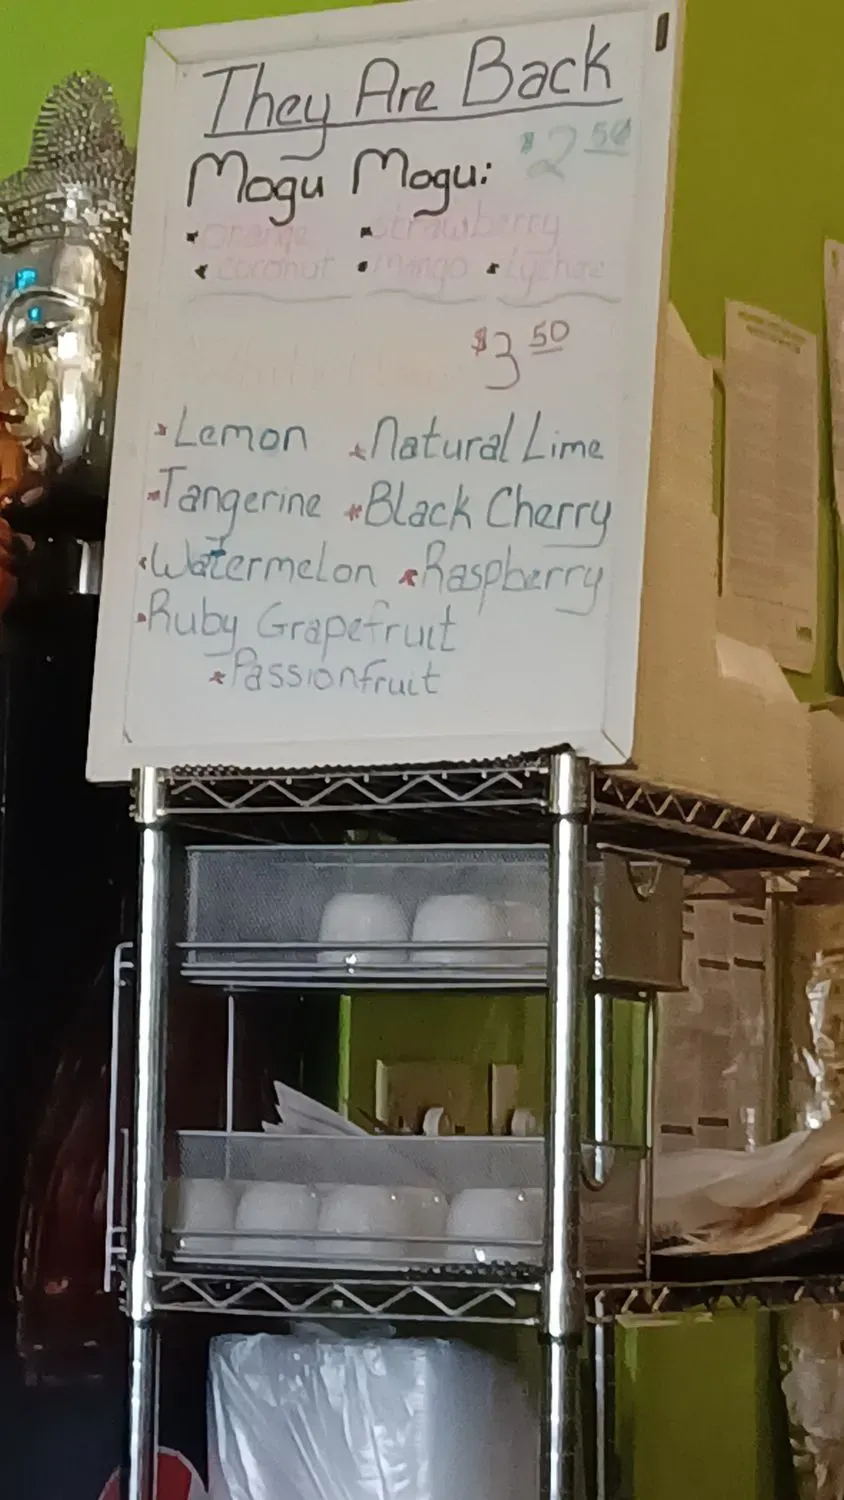 They Are Back
Mogu Mogu: $2 50
orange strawberry
coconut mango lychee
$3 50
Lemon Natural Lime
Tangerine Black Cherry
Watermelon Raspberry
Ruby Grapefruit
Passionfruit